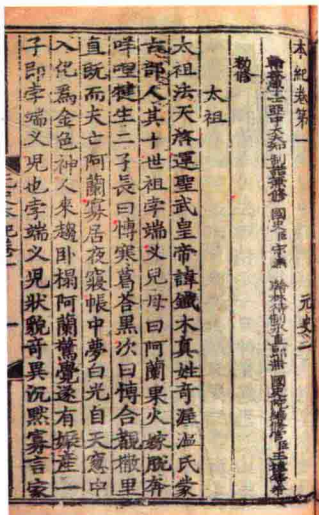 本紀卷第一 元史一
翰林學士亞中大夫知制誥兼修國史臣宋濂 翰林待制承直郎兼國史院編修官臣王禕等奉
勑修
太祖
太祖法天啓運聖武皇帝諱鐵木真姓奇渥温氏蒙
古部人其十世祖孛端义兒母曰阿蘭果火嫁脫奔
咩哩犍生二子長曰博寒葛荅黑次曰博合覩撒里
直既而夫亡阿蘭寡居夜寢帳中夢白光自天窻中
入化為金色神人來趨卧榻阿蘭驚覺遂有娠產一
子即孛端义兒也孛端义兒狀貌奇異沉默寡言家